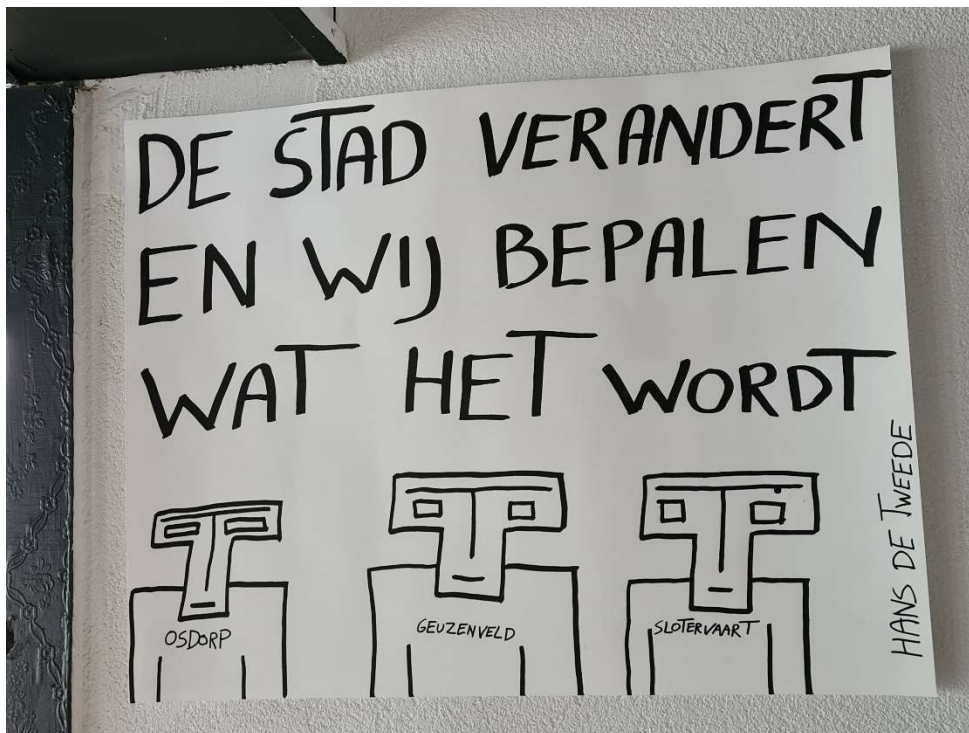 DE STAD VERANDERT
EN WIJ BEPALEN
WAT HET WORDT
OSDORP
GEUZENVELD
SLOTERVAART
HANS DE TWEEDE